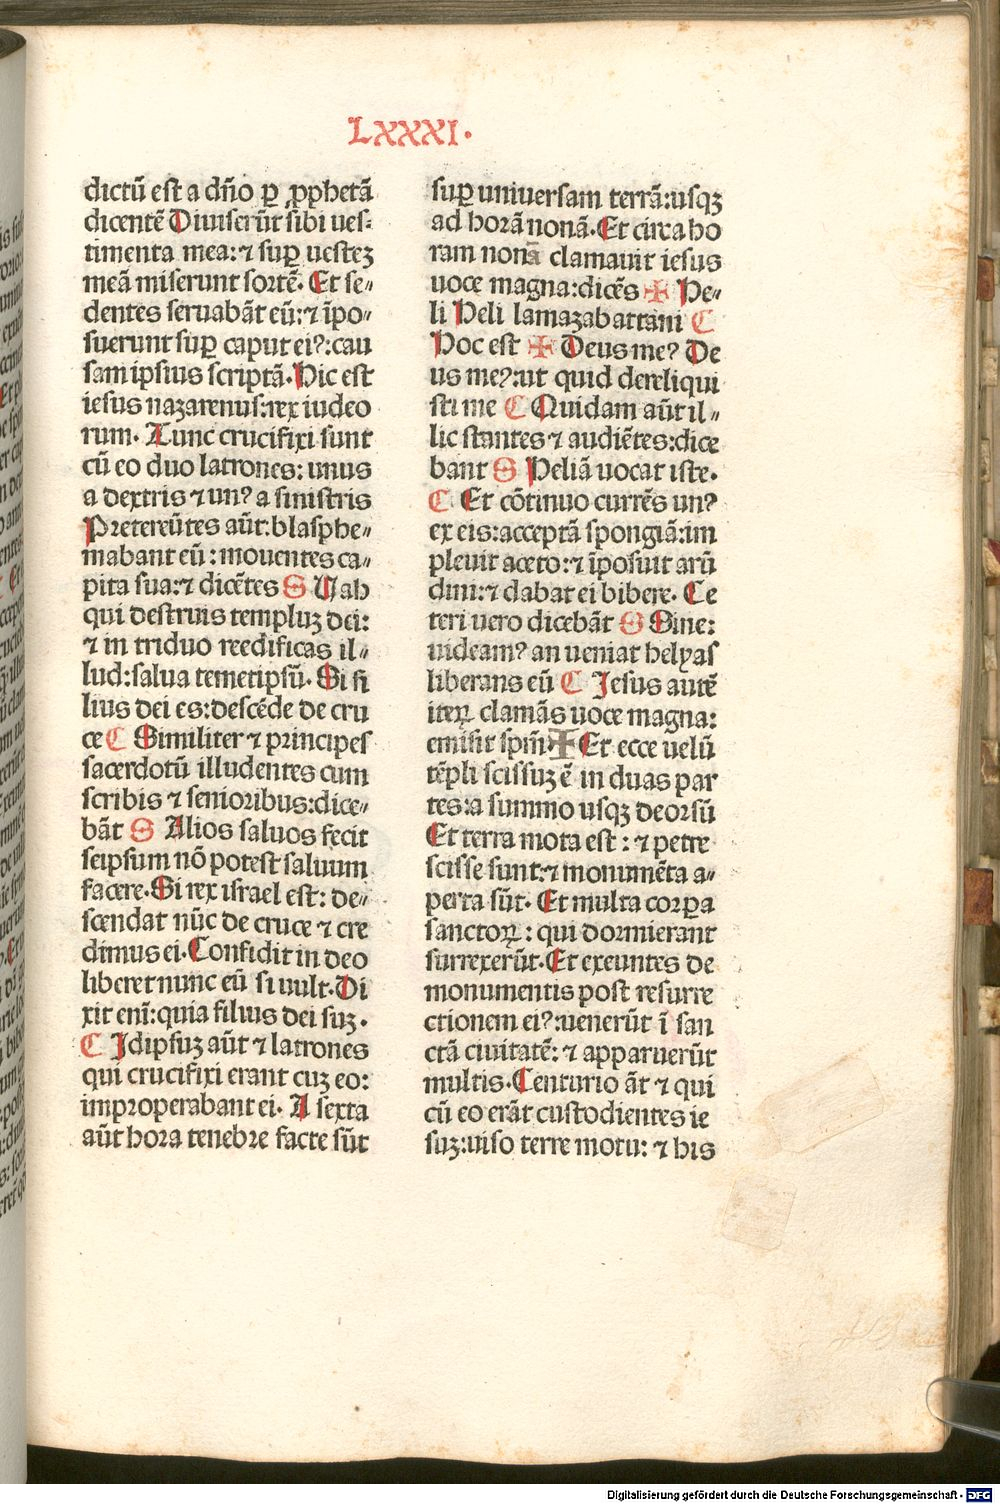 LXXXI.
dictū est a dn̄o ꝑ ꝓphetā
dicentē Diuiserūt sibi ues-
timenta mea: ⁊ suꝑ uestez
meā miserunt sortē. Et se-
dentes seruabāt eū: ⁊ īpo-
suerunt suꝑ caput ei?: cau
sam ipsius scriptā. Hic est
iesus nazarenus: rex iudeo
rum. Tunc crucifixi sunt
cū eo duo latrones: unus
a dextris ⁊ un? a sinistris
Pretereūtes aūt: blasphe-
mabant eū: mouentes ca-
pita sua: ⁊ dicētes S Uah
qui destruis templuz dei:
⁊ in triduo reedificas il-
lud: salua temetipsū. Si fi
lius dei es: descēde de cru
ce C Similiter ⁊ principes
sacerdotū illudentes cum
scribis ⁊ senioribus: dice-
bāt S Alios saluos fecit
seipsum nō potest saluum
facere. Si rex israel est: de-
scendat nūc de cruce ⁊ cre
dimus ei. Confidit in deo
liberet nunc eū si uult. Di
xit enī: quia filius dei suz.
C Idipsuz aūt ⁊ latrones
qui crucifixi erant cuz eo:
improperabant ei. A sexta
aūt hora tenebre facte sūt
suꝑ uniuersam terrā: usqz
ad horā nonā. Et circa ho
ram nonā clamauit iesus
uoce magna: dicēs ✠ He-
li Heli lamazabattani C
Hoc est ✠ Deus me? De
us me?: ut quid dereliqui
sti me C Quidam aūt il-
lic stantes ⁊ audiētes: dice
bant S Heliā uocat iste.
C Et cōtinuo currēs un?
ex eis: acceptā spongiā: im
pleuit aceto: ⁊ īposuit arū
dini: ⁊ dabat ei bibere. Ce
teri uero dicebāt S Sine:
uideam? an ueniat helyas
liberans eū C Jesus autē
iteꝝ clamās uoce magna:
emisit spm̄ ✠ Et ecce uelū
tēpli scissuz ē in duas par
tes: a summo usqz deorsū
Et terra mota est: ⁊ petre
scisse sunt: ⁊ monumēta a-
perta sūt. Et multa corꝑa
sanctoꝝ: qui dormierant
surrexerūt. Et exeuntes de
monumentis post resurre
ctionem ei?: uenerūt ī san
ctā ciuitatē: ⁊ apparuerūt
multis. Centurio āt ⁊ qui
cū eo erāt custodientes ie
suz: uiso terre motu: ⁊ his
Digitalisierung gefördert durch die Deutsche Forschungsgemeinschaft - DFG